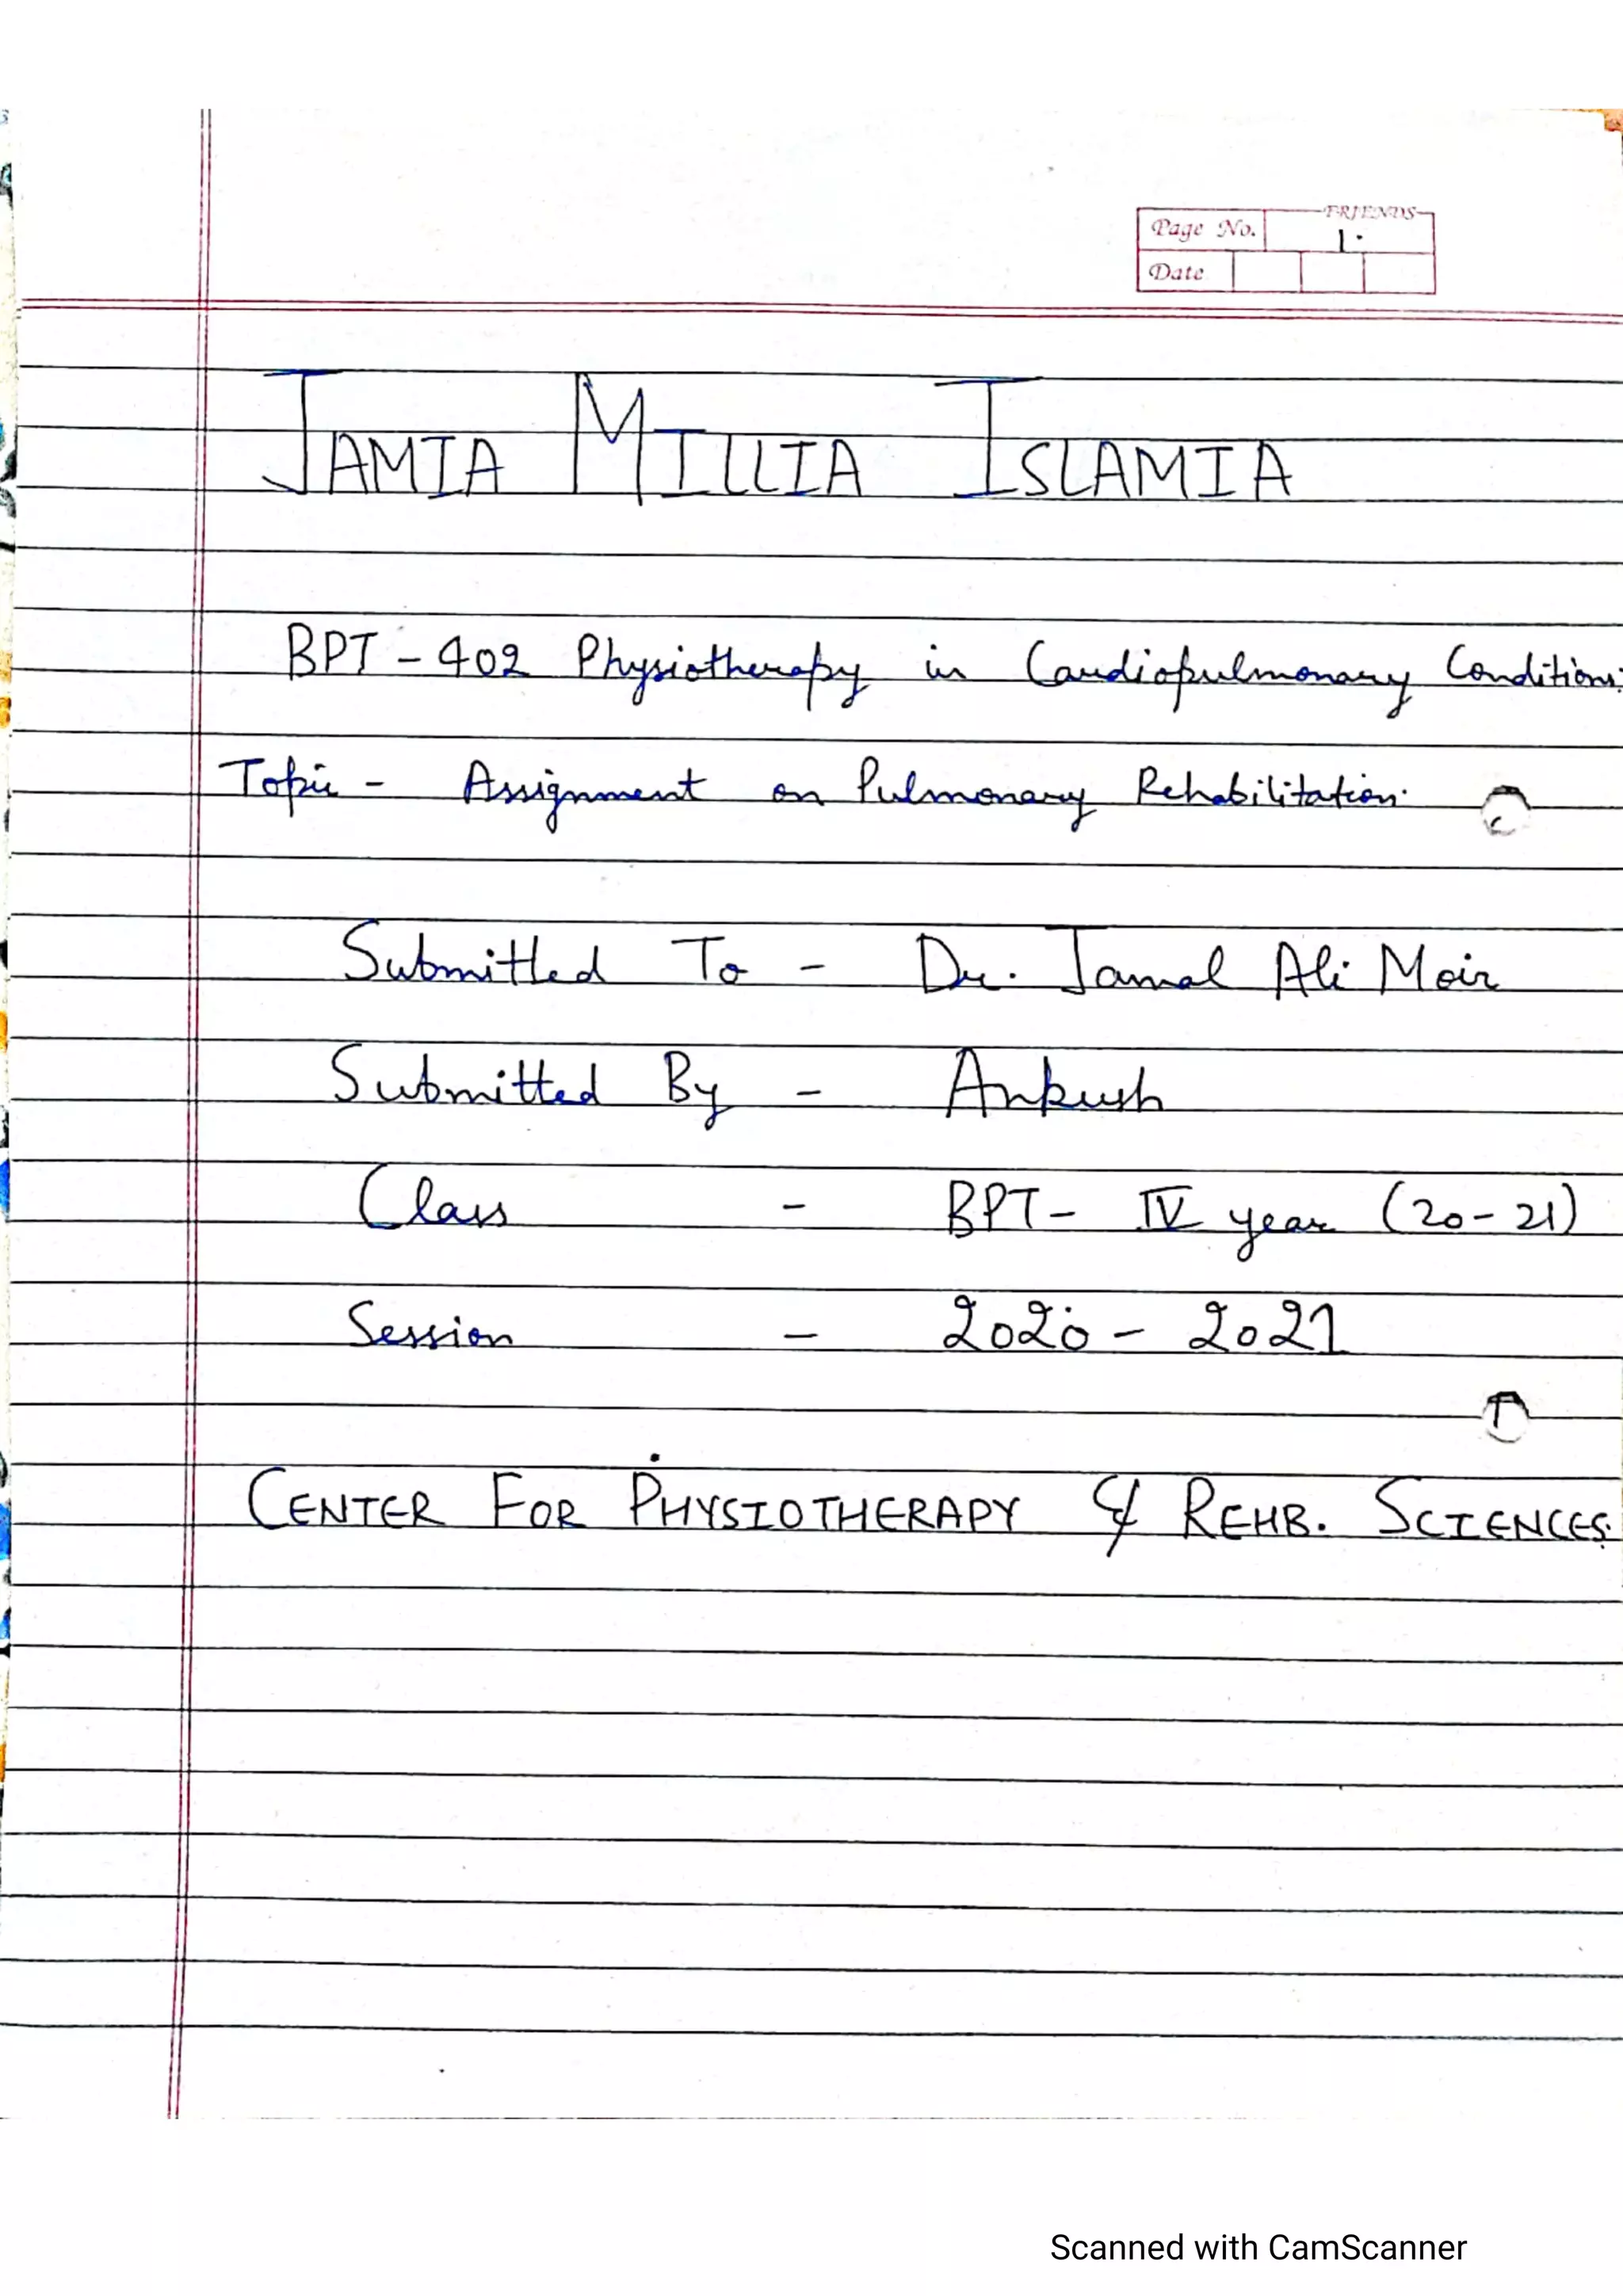 FRIENDS
Page No. 1.
Date
JAMIA MILLIA ISLAMIA
BPT - 402 Physiotherapy in Cardiopulmonary Conditions.
Topic - Assignment on Pulmonary Rehabilitation.
Submitted To - Dr. Jamal Ali Moiz
Submitted By - Ankush
Class - BPT - IV year (20-21)
Session - 2020 - 2021
CENTER FOR PHYSIOTHERAPY & REHB. SCIENCES.
Scanned with CamScanner